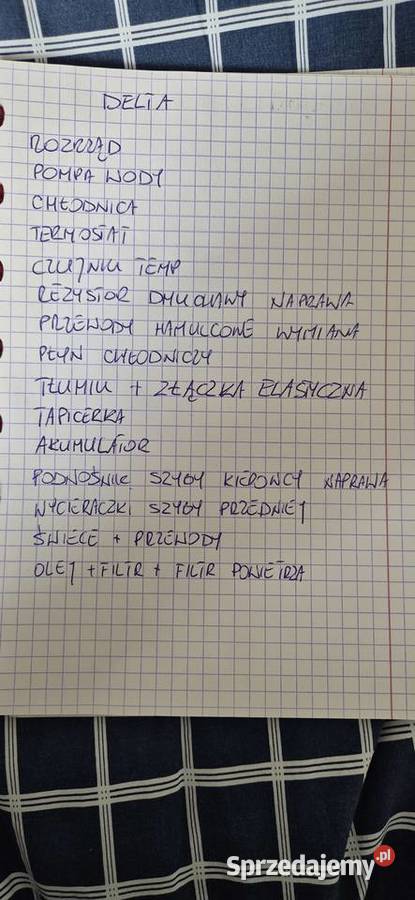 DELTA
ROZRZĄD
POMPA WODY
CHŁODNICA
TERMOSTAT
CZUJNIK TEMP
REZYSTOR DMUCHAWY NAPRAWA
PRZEWODY HAMULCOWE WYMIANA
PŁYN CHŁODNICZY
TŁUMIK + ZŁĄCZKA ELASTYCZNA
TAPICERKA
AKUMULATOR
PODNOŚNIK SZYBY KIEROWCY NAPRAWA
WYCIERACZKI SZYBY PRZEDNIEJ
ŚWIECE + PRZEWODY
OLEJ + FILTR + FILTR POWIETRZA
Sprzedajemy.pl